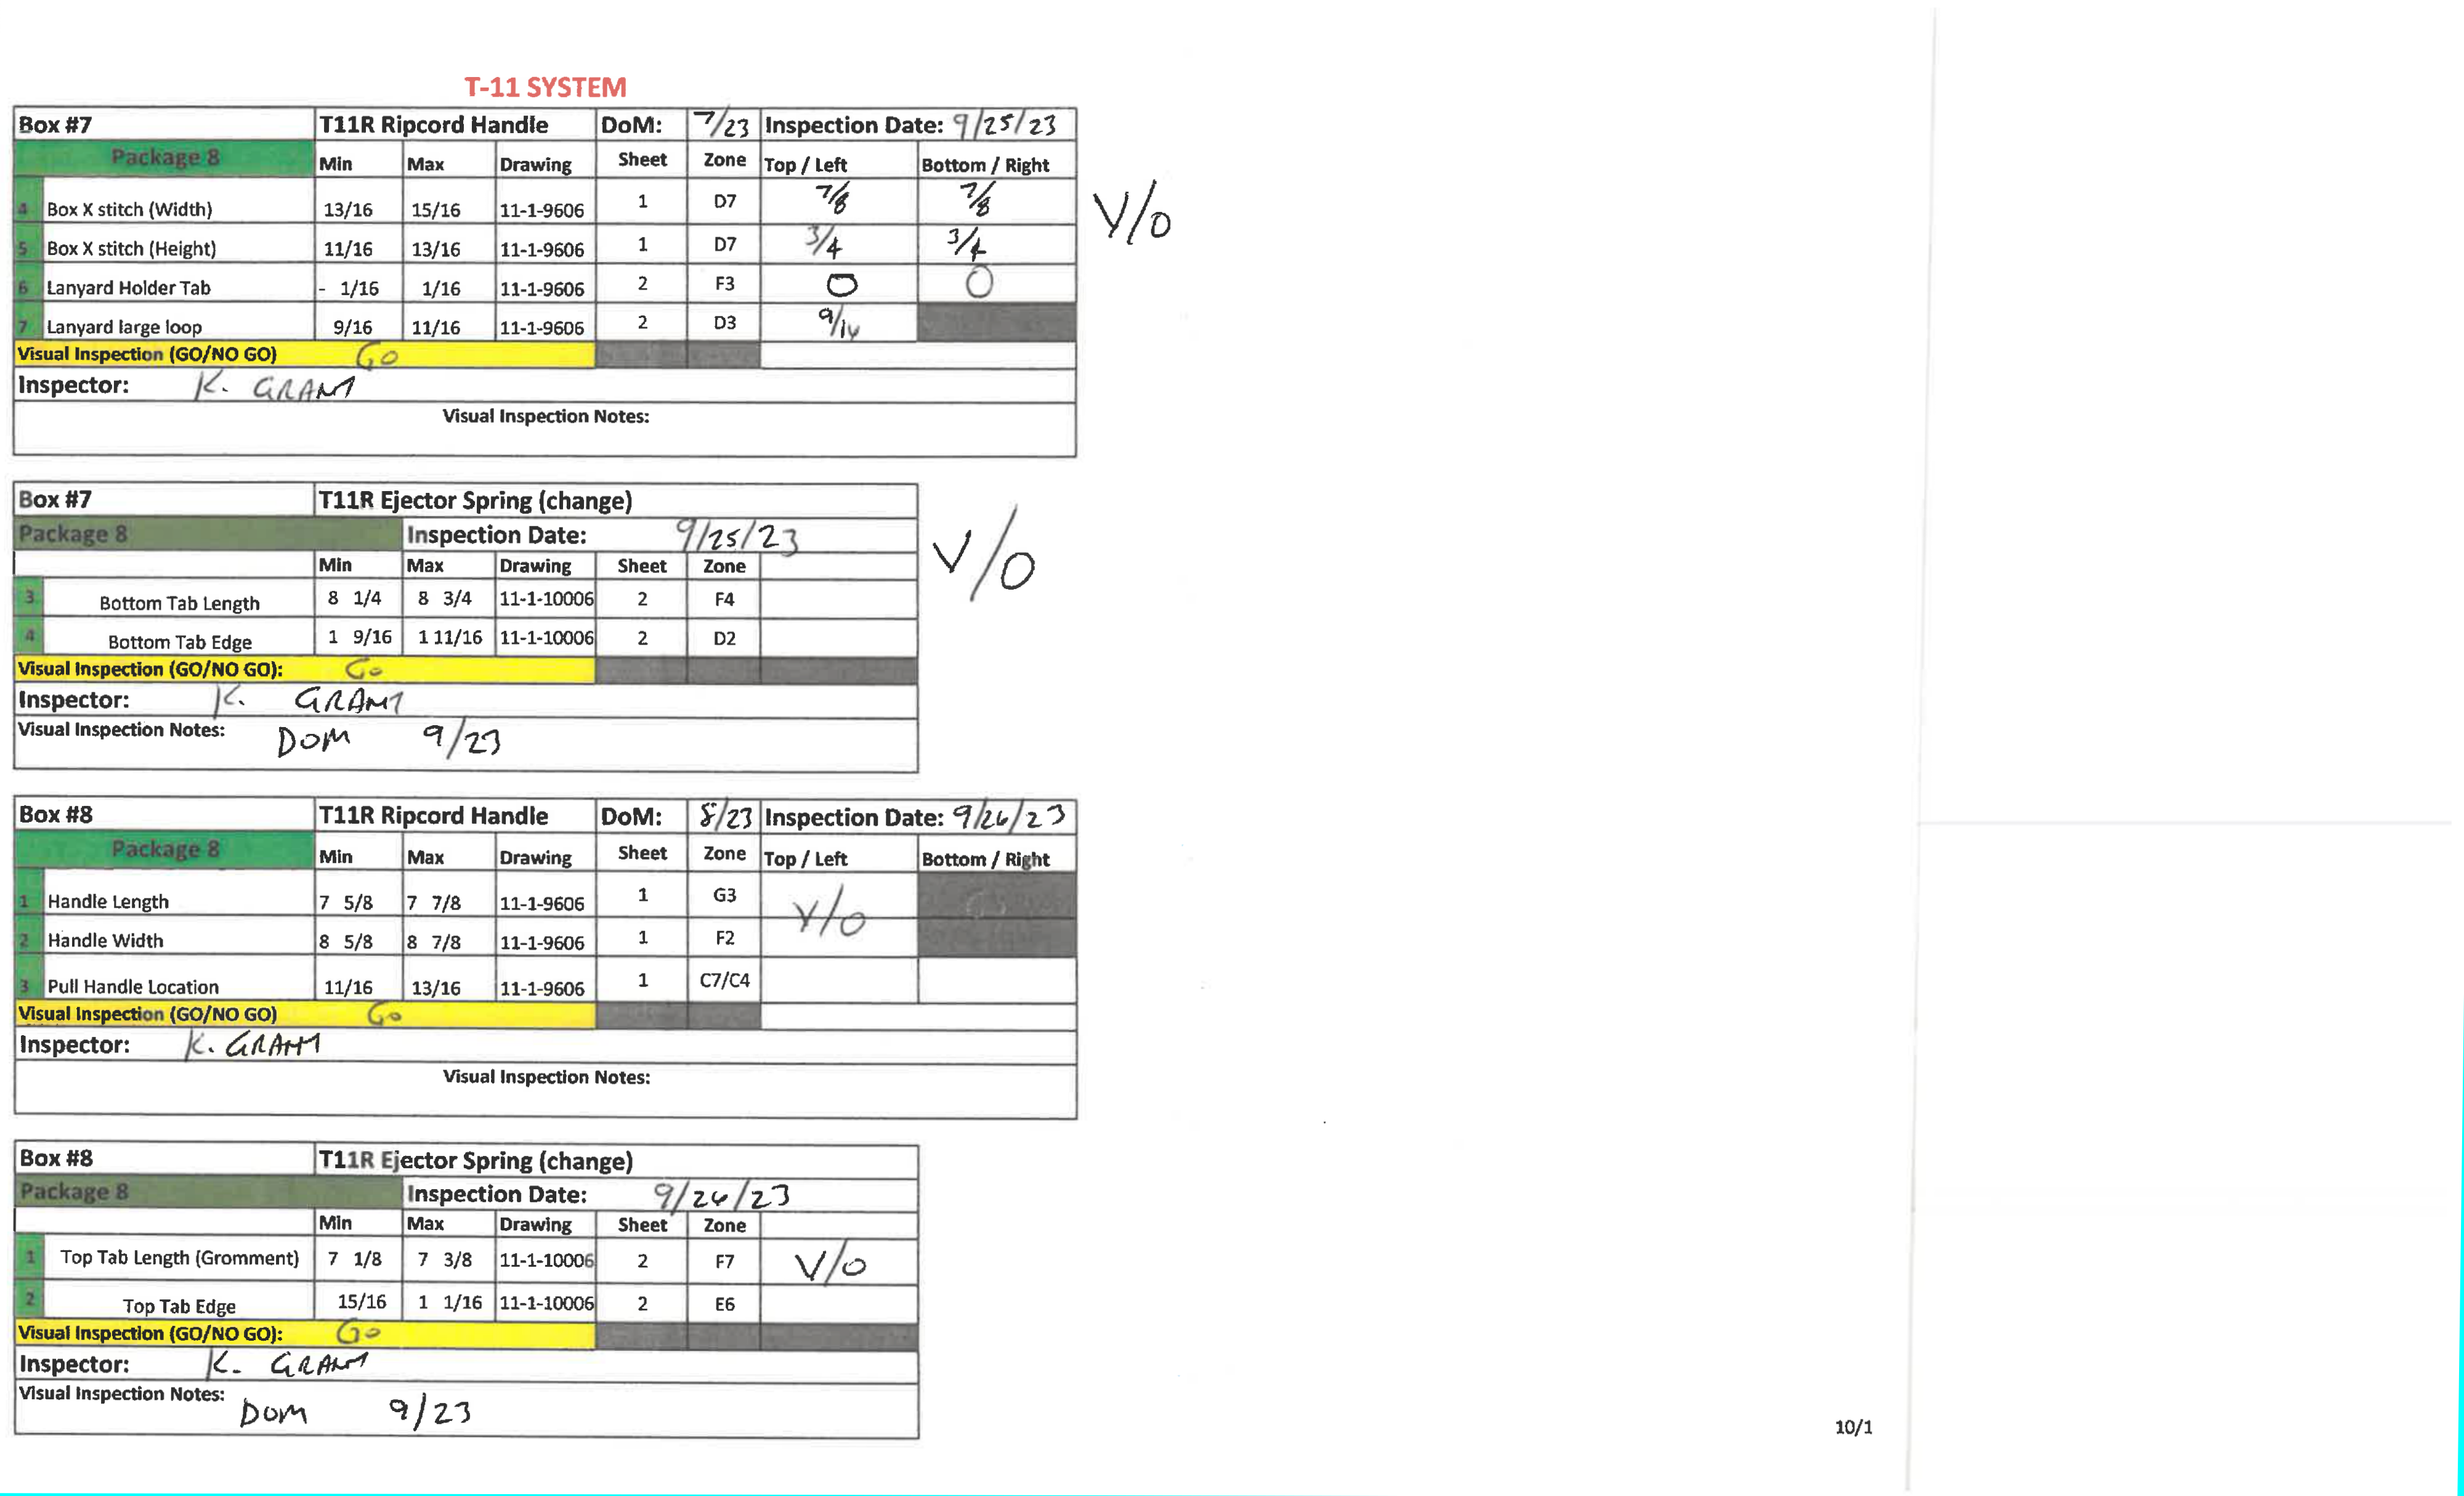 T-11 SYSTEM
Box #7 T11R Ripcord Handle DoM: 7/23 Inspection Date: 9/25/23
Package 8 Min Max Drawing Sheet Zone Top / Left Bottom / Right
4 Box X stitch (Width) 13/16 15/16 11-1-9606 1 D7 7/8 7/8
V/O
5 Box X stitch (Height) 11/16 13/16 11-1-9606 1 D7 3/4 3/4
6 Lanyard Holder Tab - 1/16 1/16 11-1-9606 2 F3 0 0
7 Lanyard large loop 9/16 11/16 11-1-9606 2 D3 9/16
Visual Inspection (GO/NO GO) GO
Inspector: K. GRANT
Visual Inspection Notes:
Box #7 T11R Ejector Spring (change)
Package 8 Inspection Date: 9/25/23
V/O
Min Max Drawing Sheet Zone
3 Bottom Tab Length 8 1/4 8 3/4 11-1-10006 2 F4
4 Bottom Tab Edge 1 9/16 1 11/16 11-1-10006 2 D2
Visual Inspection (GO/NO GO): GO
Inspector: K. GRANT
Visual Inspection Notes: DOM 9/23
Box #8 T11R Ripcord Handle DoM: 8/23 Inspection Date: 9/26/23
Package 8 Min Max Drawing Sheet Zone Top / Left Bottom / Right
1 Handle Length 7 5/8 7 7/8 11-1-9606 1 G3 V/O
2 Handle Width 8 5/8 8 7/8 11-1-9606 1 F2
3 Pull Handle Location 11/16 13/16 11-1-9606 1 C7/C4
Visual Inspection (GO/NO GO) GO
Inspector: K. GRANT
Visual Inspection Notes:
Box #8 T11R Ejector Spring (change)
Package 8 Inspection Date: 9/26/23
Min Max Drawing Sheet Zone
1 Top Tab Length (Gromment) 7 1/8 7 3/8 11-1-10006 2 F7 V/O
2 Top Tab Edge 15/16 1 1/16 11-1-10006 2 E6
Visual Inspection (GO/NO GO): GO
Inspector: K. GRANT
Visual Inspection Notes: DOM 9/23
10/1